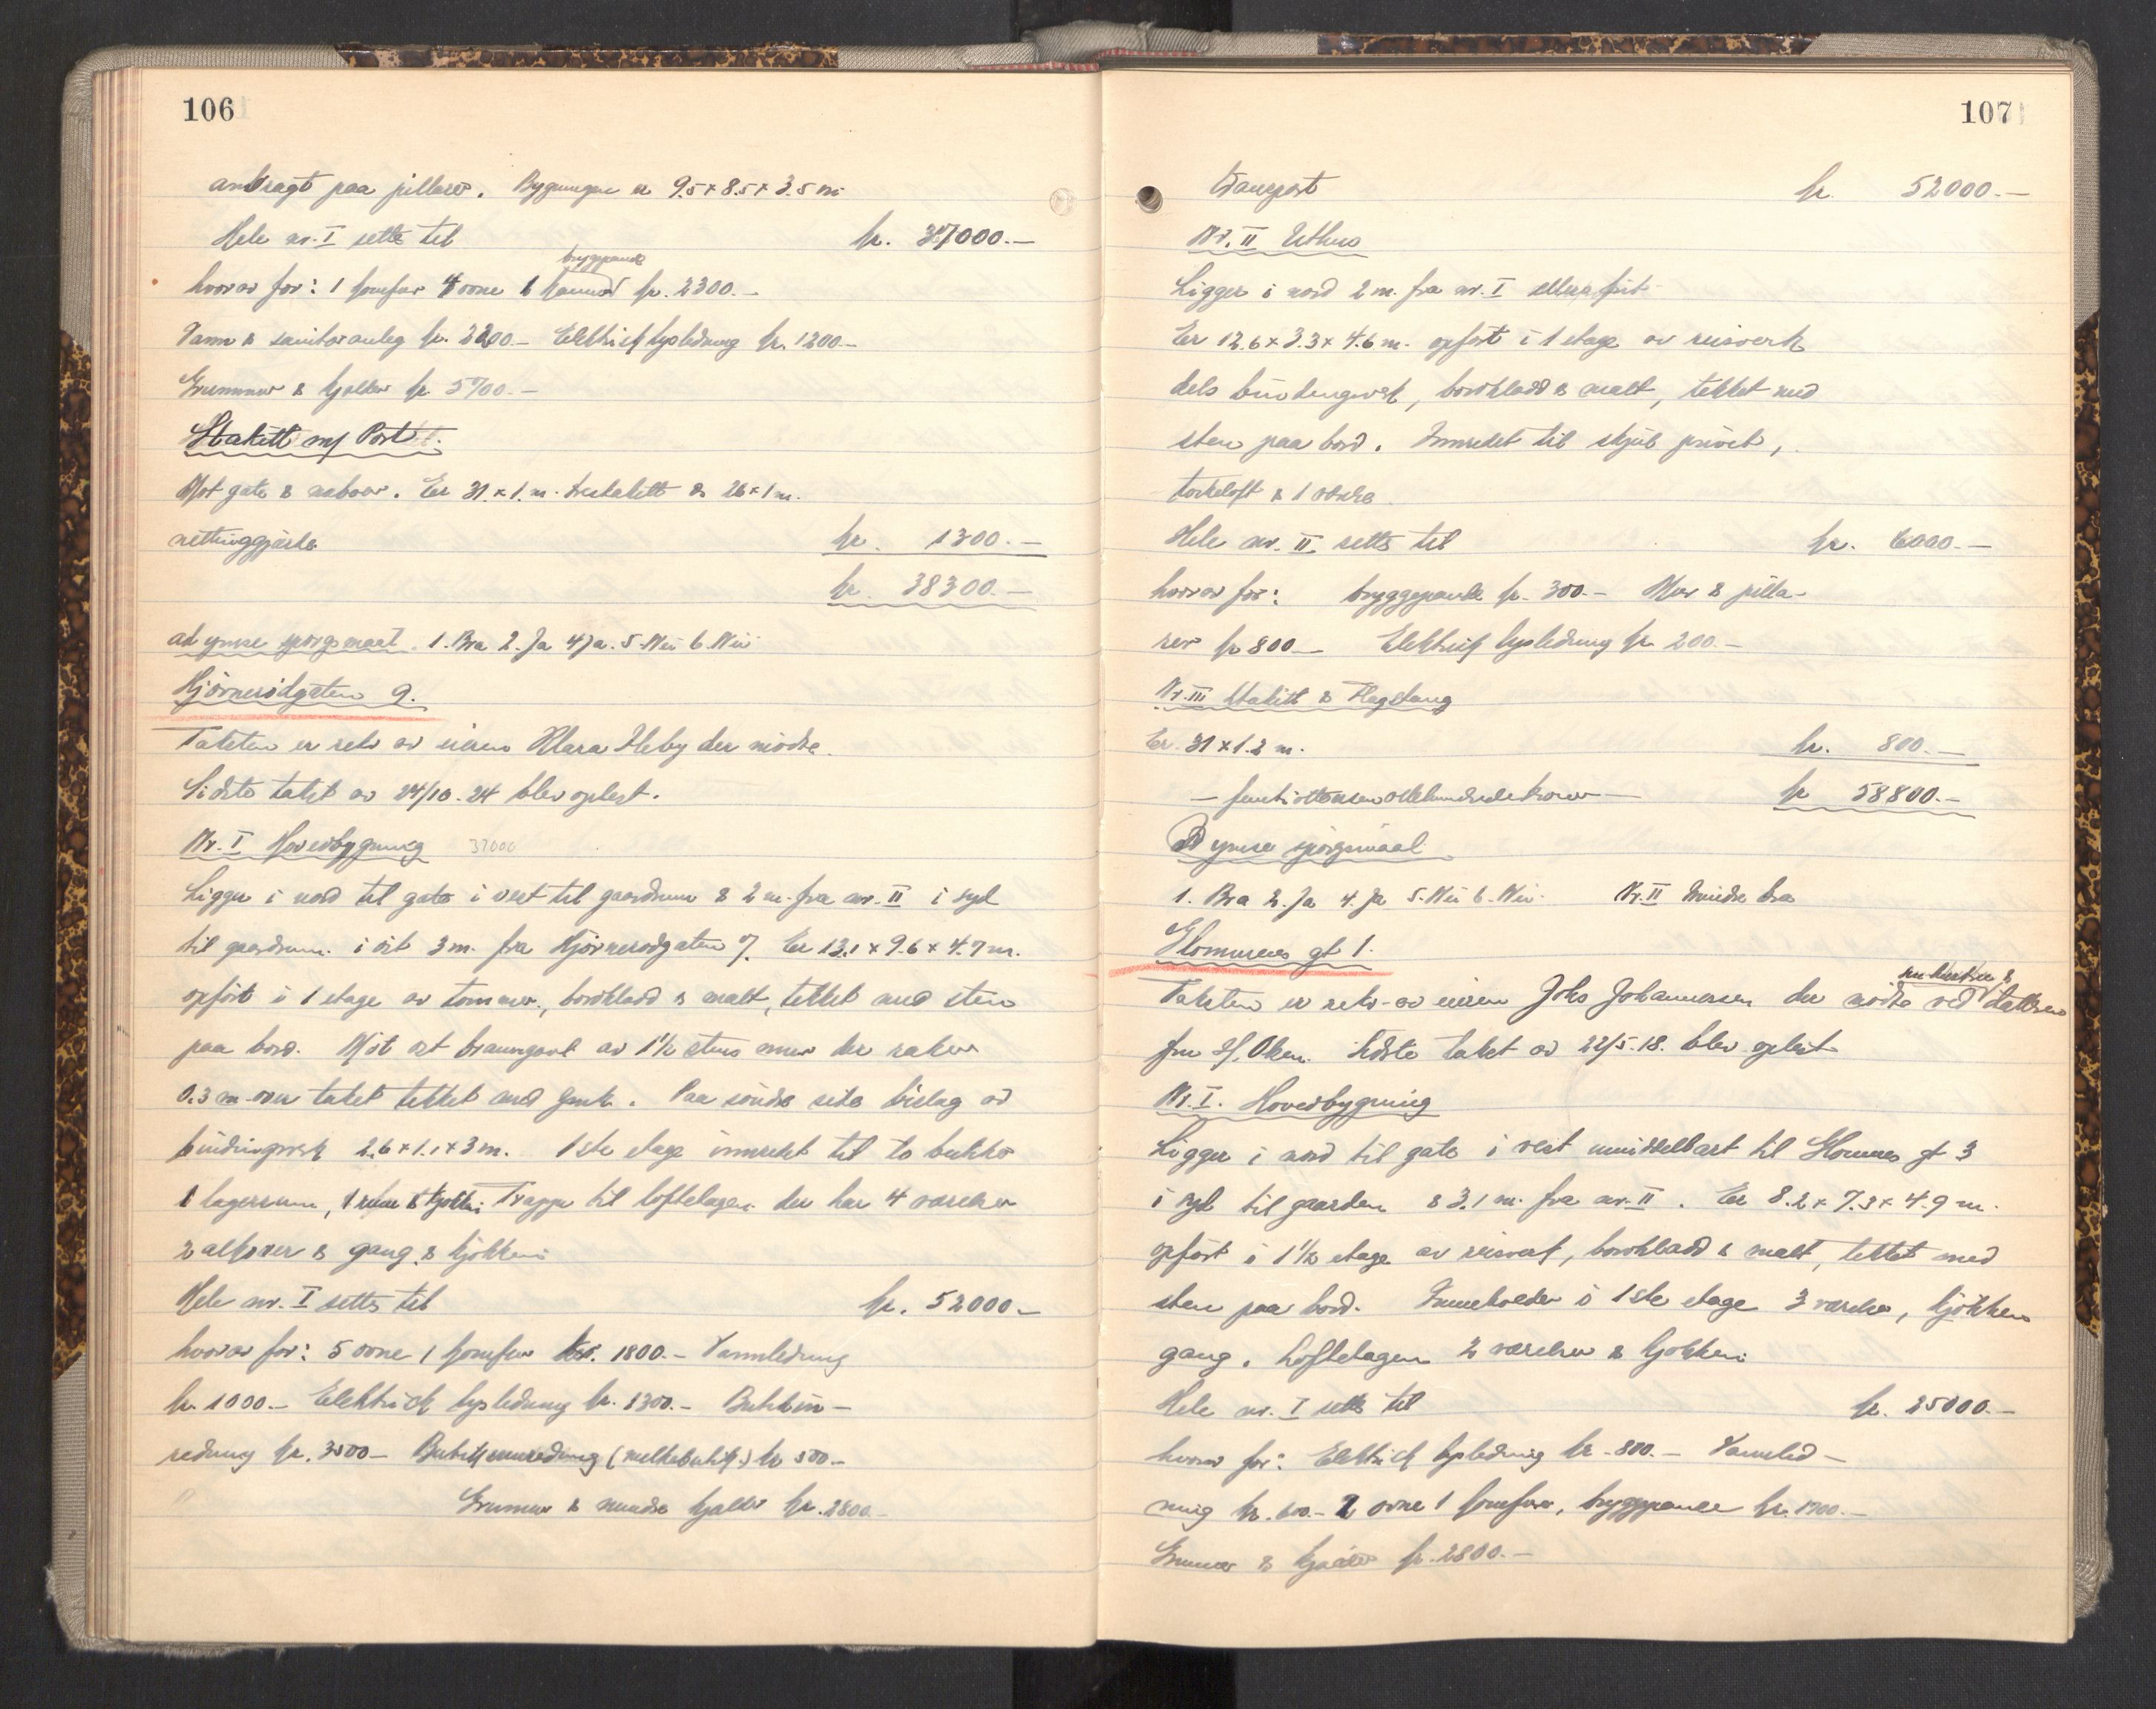 106
anbragt paa pillarer. Bygningen er 9.5 x 8.5 x 3.5 m
Hele nr. I settes til kr. 37000.-
bryggepande
hvorav for: 1 komfur 4 ovne 1 kr. 2300.-
Vann & sanitæranleg kr. 2200- Elektrisk lysledning kr. 1200-
Grunnmur & kjelder kr. 5700.-
Stakitt m/ Port.
Mot gate & naboer. Er 31 x 1. m. trestakitt & 26 x 1 m.
nettinggjærde kr. 1300.-
kr. 38300.-
ad ymse spørgsmaal. 1. Bra 2. Ja 4 Ja. 5. Nei 6. Nei
Hjørnerødgaten 9.
Taksten er rekv. av eieren Klara Heby der mødte.
Sidste takst av 24/10-24 blev oplest.
Nr. I Hovedbygning 37000
Ligger i nord til gate i vest til gaardsrum & 2 m. fra nr. II i syd
til gaardsrum i øst 3 m. fra Hjørnerødgaten 7. Er 13.1 x 9.6 x 4.7 m.
opført i 1 etage av tømmer, bordkladd & malt, tekket med sten
paa bord. Mot øst branngavl av 1½ stens mur der raker
0.3 m over taket tekket med zink. Paa søndre side bislag av
bindingverk 2.6 x 1.1 x 3 m. 1ste etage innredet til to butikker
1 lagerrum, & kjøkken. Trappe til loftetagen der har 4 værelser
2 alkover & gang & kjøkken
Hele nr. I settes til kr. 52000-
hvorav for: 5 ovne 1 komfur kr. 1800.- Vannledning
kr. 1000.- Elektrisk lysledning kr. 1300.- Butikkin-
redning kr. 3500- Butikkinnredning (melkebutik) kr 500.-
Grunmur & mindre kjelder kr. 2800.-
107
Transport kr. 52000.-
Nr. II Uthus
Ligger i nord 2 m. fra nr. I ellers frit
Er 12.6 x 3.3 x 4.6 m. opført i 1 etage av reisverk
dels bindingverk, bordkladd & malt, tekket med
sten paa bord. Innredet til skjul privet,
tørkeloft & 1 værelse
Hele nr. II settes til kr. 6000.-
hvorav for: bryggepande kr. 300.- Mur & pilla-
rer kr 800- Elektrisk lysledning kr. 200.-
Nr. III Stakitt & Flagstang
Er 31 x 1.2 m. kr. 800.-
- femtiottetusenottehundredekroner - kr 58800.-
Ad ymse spørgsmaal
1. Bra 2. Ja 4. Ja 5. Nei 6. Nei. Nr. II mindre bra
Glommens gt 1.
Taksten er rekv. av eieren Johs Johannersen der mødte ved datteren
fru H. Olsen. Sidste takst av 22/5.18. blev oplest
Nr. I. Hovedbygning
Ligger i nord til gate i vest umiddelbart til Glommens gt 3
i syd til gaarden & 3.1 m. fra nr. II. Er 8.2 x 7.3 x 4.9 m.
opført i 1½ etage av reisverk, bordkladd & malt, tekket med
sten paa bord. Inneholder i 1ste etage 3 værelser, kjøkken
gang. Loftetagen 2 værelser & kjøkken
Hele nr. I settes til kr. 25000.-
hvorav for: Elektrisk lysledning kr. 800.- Vannled-
ning kr. 600.- 2 ovne 1 komfur, bryggepande kr. 1700.-
Grunmur & kjælder kr. 2800.-